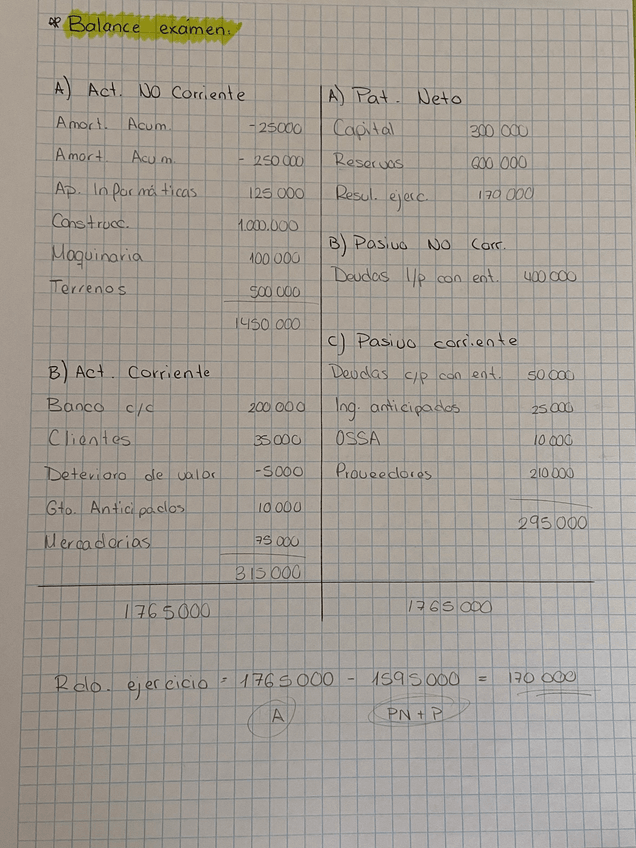 * Balance exámen:
A) Act. NO Corriente
Amort. Acum. -25000
Amort. Acum. - 250 000
Ap. Informáticas 125.000
Construcc. 1.000.000
Maquinaria 100 000
Terrenos 500 000
1450 000
B) Act. Corriente
Banco c/c 200 000
Clientes 35 000
Deterioro de valor -5000
Gto. Anticipados 10 000
Mercadorias 75 000
315 000
1765000
A) Pat. Neto
Capital 300 000
Reservas 600 000
Resul. ejerc. 170 000
B) Pasivo NO Corr.
Deudas l/p con ent. 400 000
C) Pasivo corriente
Deudas c/p con ent. 50 000
Ing. anticipados 25 000
OSSA 10 000
Proveedores 210 000
295 000
1765 000
Rdo. ejercicio = 1765000 - 1595000 = 170 000
A PN + P